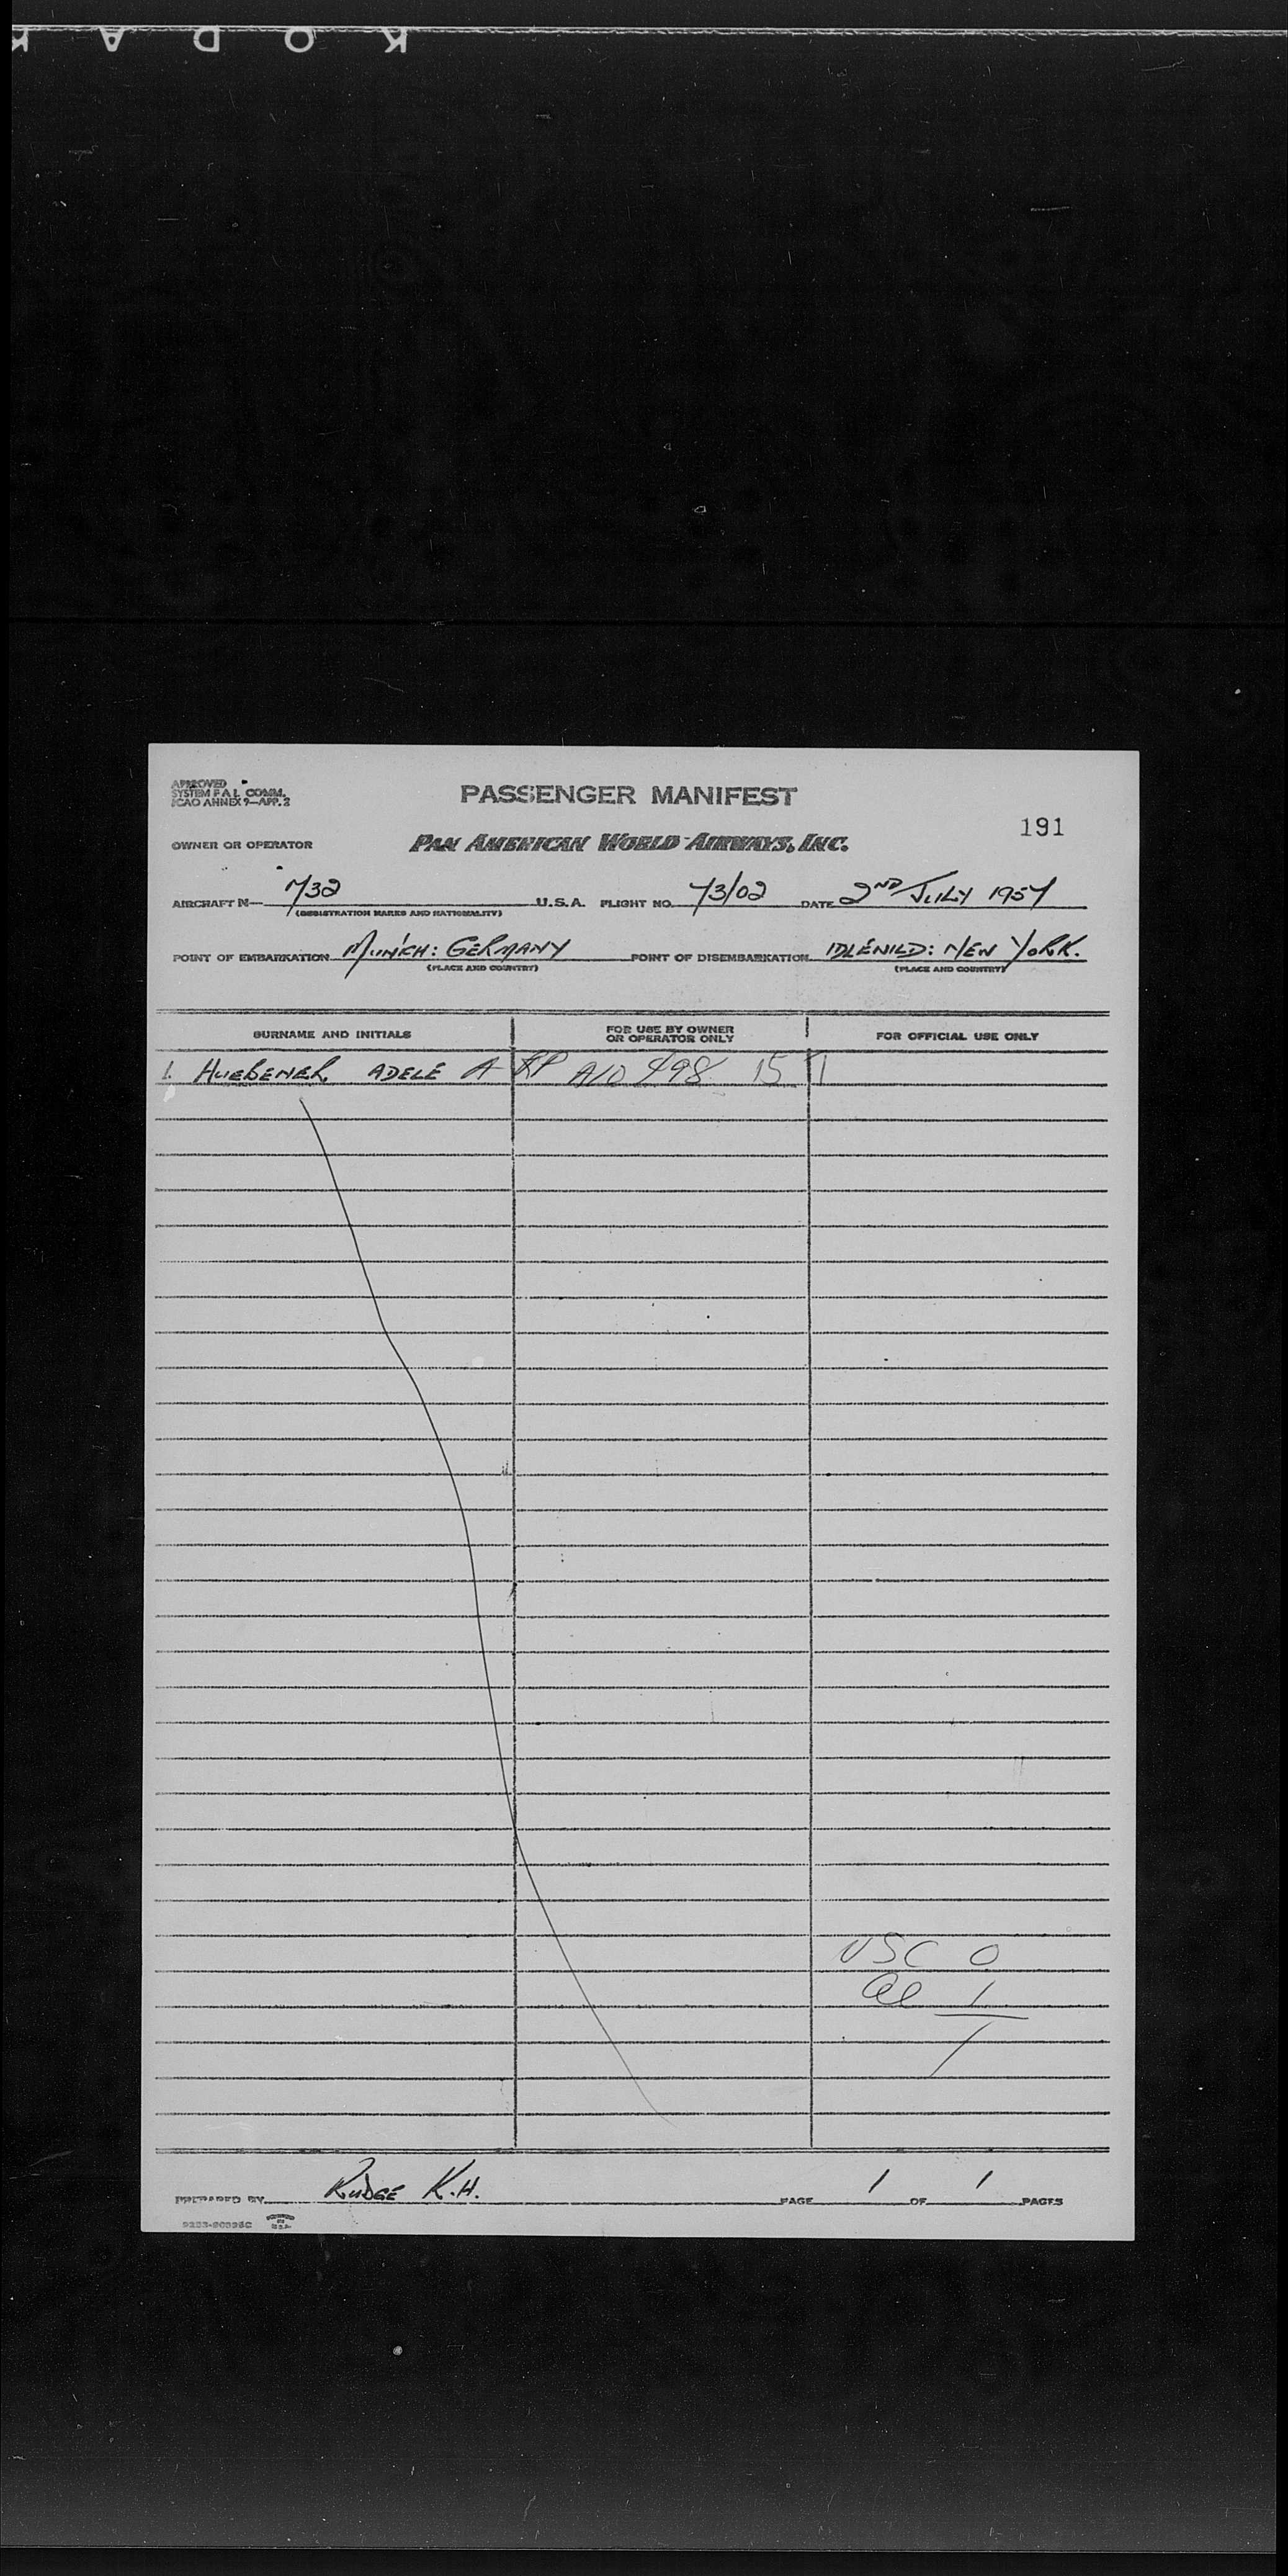 KODAK
APPROVED
SYSTEM F A L COMM.
ICAO ANNEX 9—APP. 2
PASSENGER MANIFEST
191
OWNER OR OPERATOR PAN AMERICAN WORLD AIRWAYS, INC.
AIRCRAFT N— 732 U.S.A. FLIGHT NO. 73/02 DATE 2ND JULY 1957
(REGISTRATION MARKS AND NATIONALITY)
POINT OF EMBARKATION MUNICH: GERMANY POINT OF DISEMBARKATION IDLEWILD: NEW YORK.
(PLACE AND COUNTRY) (PLACE AND COUNTRY)
SURNAME AND INITIALS FOR USE BY OWNER OR OPERATOR ONLY FOR OFFICIAL USE ONLY
1. HUEBENER ADELE A RP A10 898 151
USC 0
al 1
1
PREPARED BY RUDGE K.H. PAGE 1 OF 1 PAGES